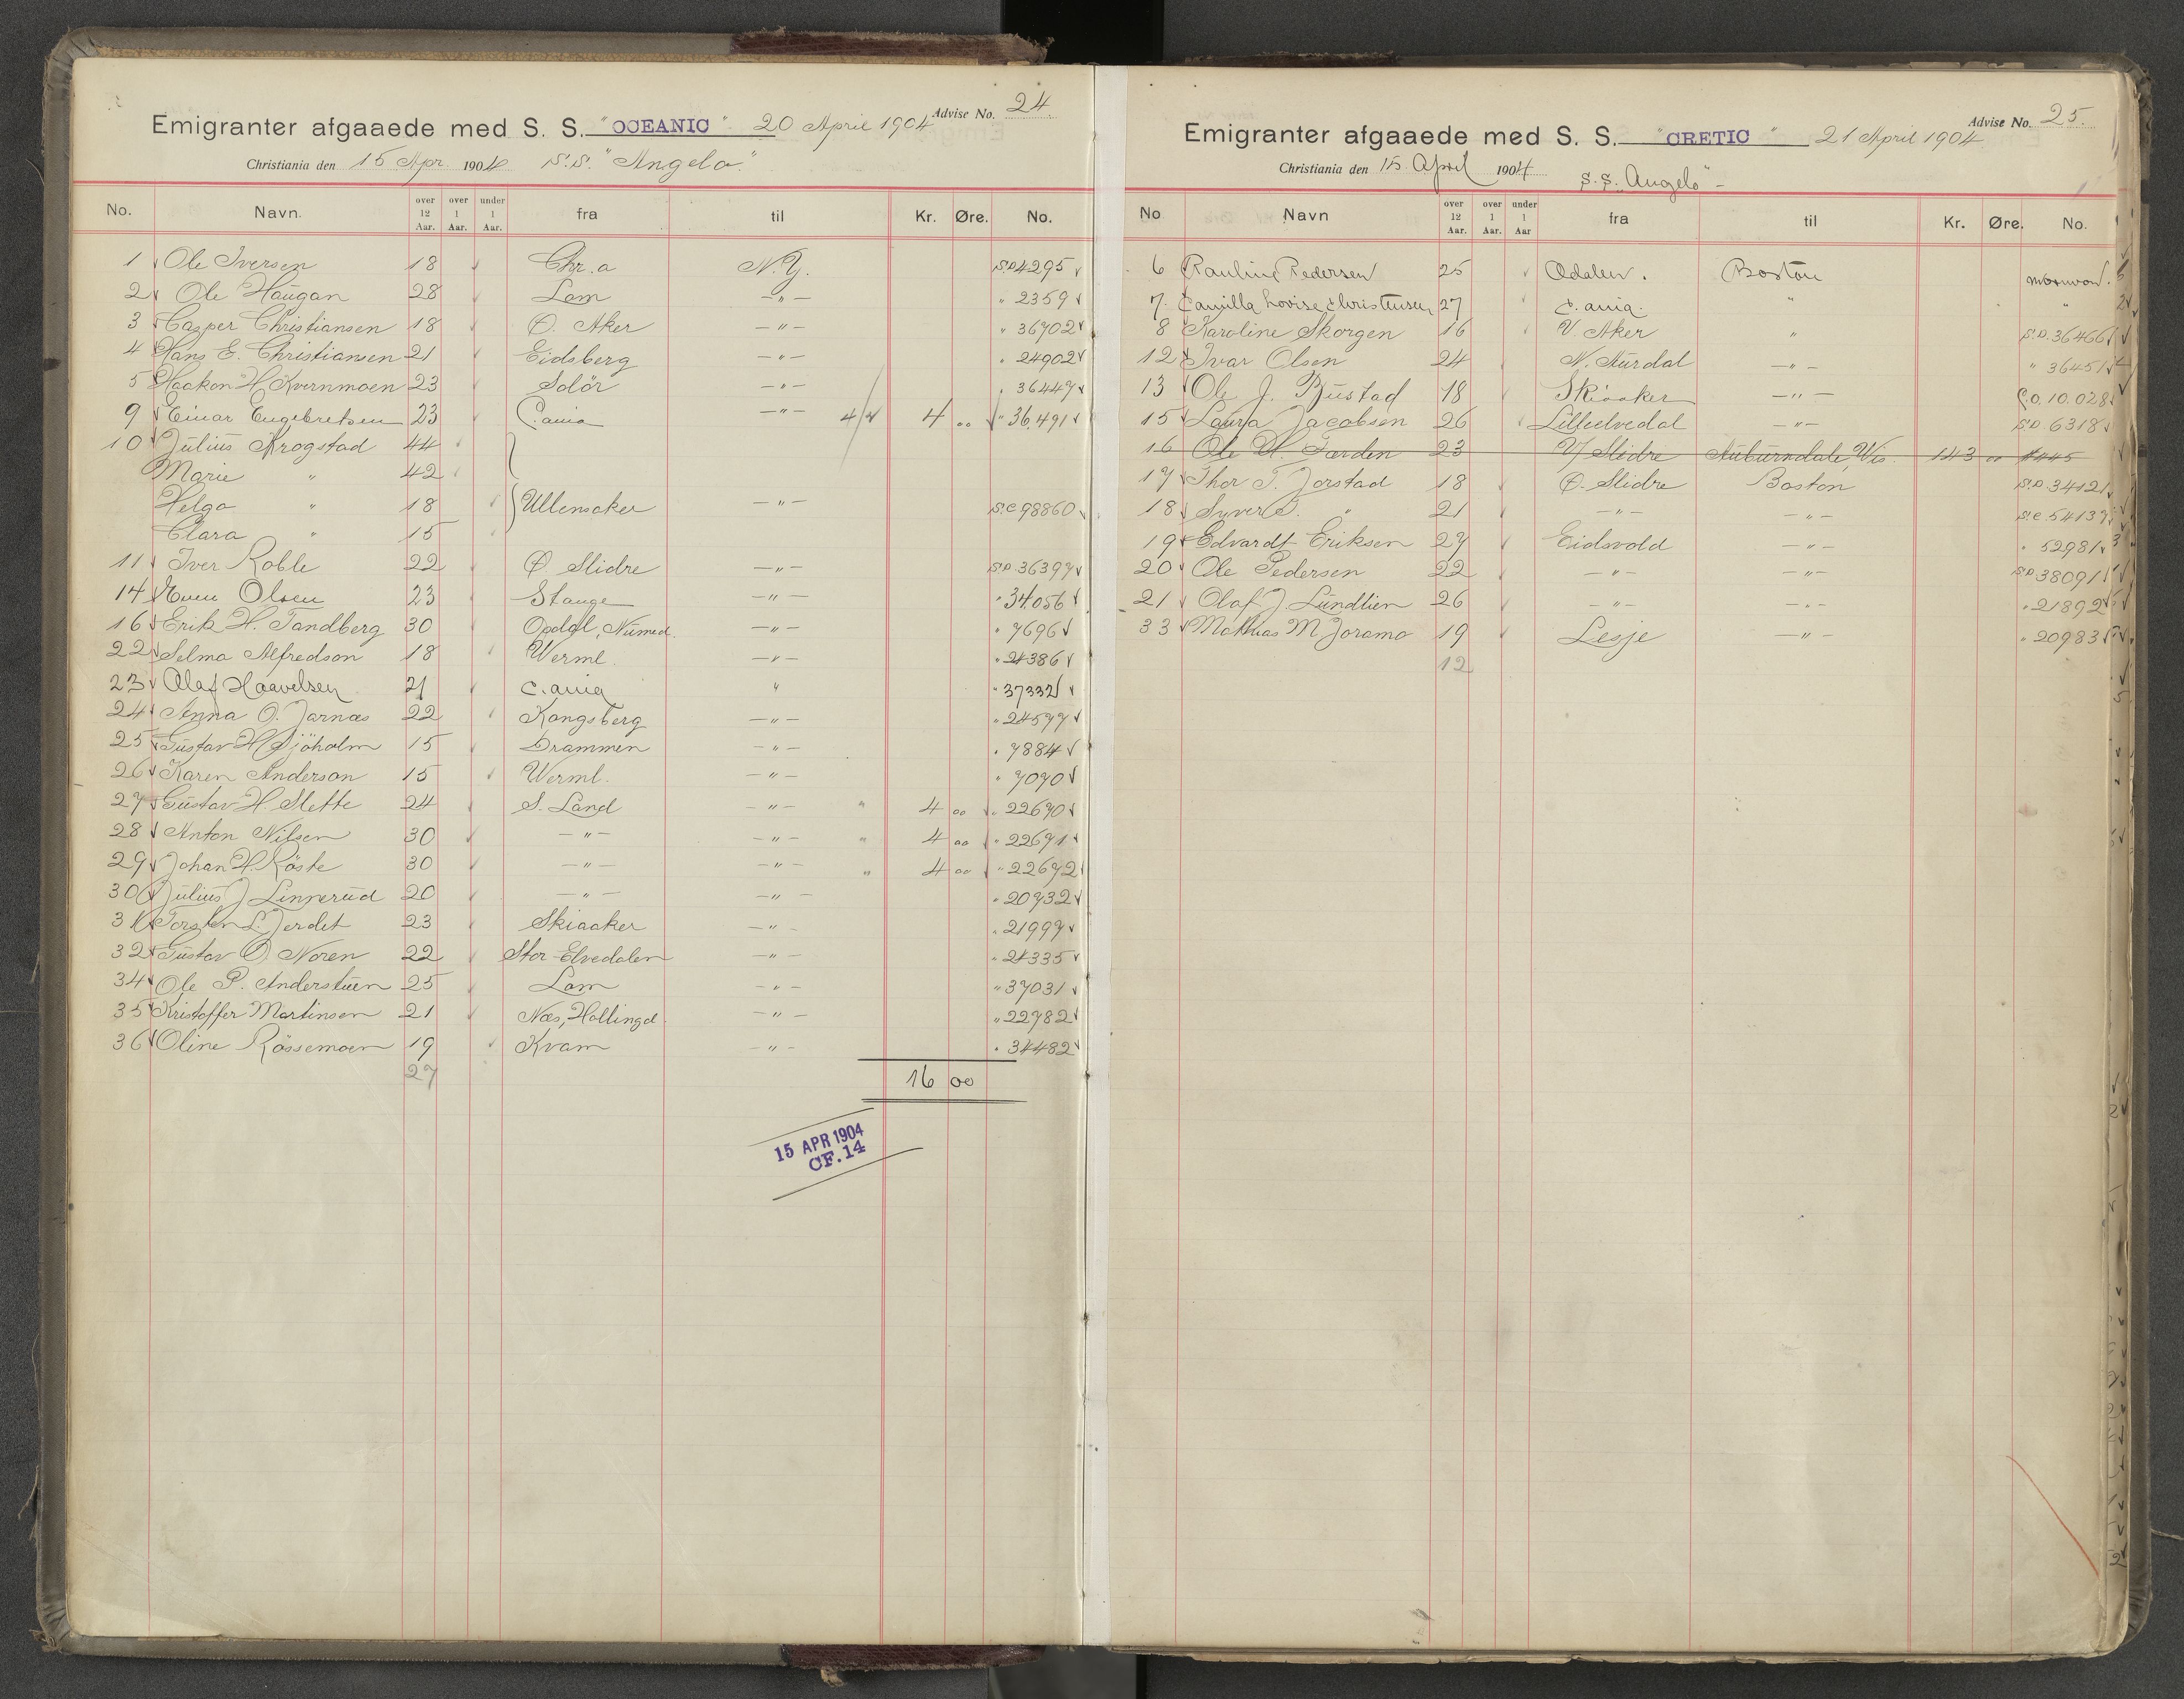 Advise No. 24
Emigranter afgaaede med S. S. "OCEANIC" 20 April 1904
Christiania den 15 Apr. 1904 S.S. "Angelo".
No. Navn. over 12 Aar. over 1 Aar. under 1 Aar. fra til Kr. Øre. No.
1 Ole Iversen 18 Chr.a N.Y. S.D 4295
2 Ole Haugan 28 Lom —"— " 2359
3 Casper Christiansen 18 Ø. Aker —"— " 36702
4 Hans E. Christiansen 21 Eidsberg —"— " 24902
5 Haakon H. Kvernmoen 23 Solör —"— " 36447
9 Einar Engebretsen 23 C.ania —"— 4/ 4 00 " 36,491
10 Julius Krogstad 44
Marie " 42
Helga " 18 Ullensaker —"— S.C 98860
Clara " 15
11 Iver Roble 22 Ø. Slidre —"— S.D. 36397
14 Even Olsen 23 Stange —"— " 34056
16 Erik H. Tandberg 30 Opdal, Numed. —"— " 7696
22 Selma Alfredson 18 Werml. —"— " 24386
23 Olaf Haavelsen 21 C.ania " " 37332
24 Anna O. Jarnæs 22 Kongsberg —"— " 24577
25 Gustav H. Sjöholm 15 Drammen —"— " 7884
26 Karen Anderson 15 Werml. —"— " 7070
27 Gustav H. Slette 24 S. Land —"— " 4 00 " 22670
28 Anton Nilsen 30 —"— —"— " 4 00 " 22671
29 Johan H. Röste 30 —"— —"— " 4 00 " 22672
30 Julius J Linnerud 20 —"— —"— " 20732
31 Torsten L. Jerdet 23 Skiaaker —"— " 21997
32 Gustav O. Noren 22 Stor-Elvedalen —"— " 24335
34 Ole P. Anderstuen 25 Lom —"— " 37031
35 Kristoffer Martinsen 21 Næs, Hallingd. —"— " 22782
36 Oline Rössemoen 19 Kvam —"— " 34482
27
16 00
15 APR 1904
CF. 14
Advise No. 25.
Emigranter afgaaede med S. S. "CRETIC" 21 April 1904
Christiania den 15. April 1904 S.S. "Angelo" -
No Navn over 12 Aar. over 1 Aar. under 1 Aar fra til Kr. Øre. No.
6 Pauline Pedersen 25 Odalen. Boston
7. Camilla Lovise Christensen 27 C.ania. " "
8 Karoline Skorgen 16 V. Aker " S.D. 36466
12 Ivar Olsen 24 N. Aurdal —"— " 36451
13 Ole J. Bjustad 18 Skiaaker —"— C.O. 10.028
15 Laura Jacobsen 26 Lilleelvedal —"— S.D. 6318
16 Ole H. Færden 23 V. Slidre Auburndale, Wis. 143 00 4445
17 Thor T. Jorstad 18 Ø. Slidre Boston S.D. 34121
18 Syver S. " 21 —"— —"— S.C. 54137
19 Edvardt Eriksen 27 Eidsvold —"— " 52981
20 Ole Pedersen 22 —"— —"— S.D 38091
21 Olaf J. Lundlien 26 —"— —"— " 21892
33 Mathias M Joramo 19 Lesje —"— " 20983
12